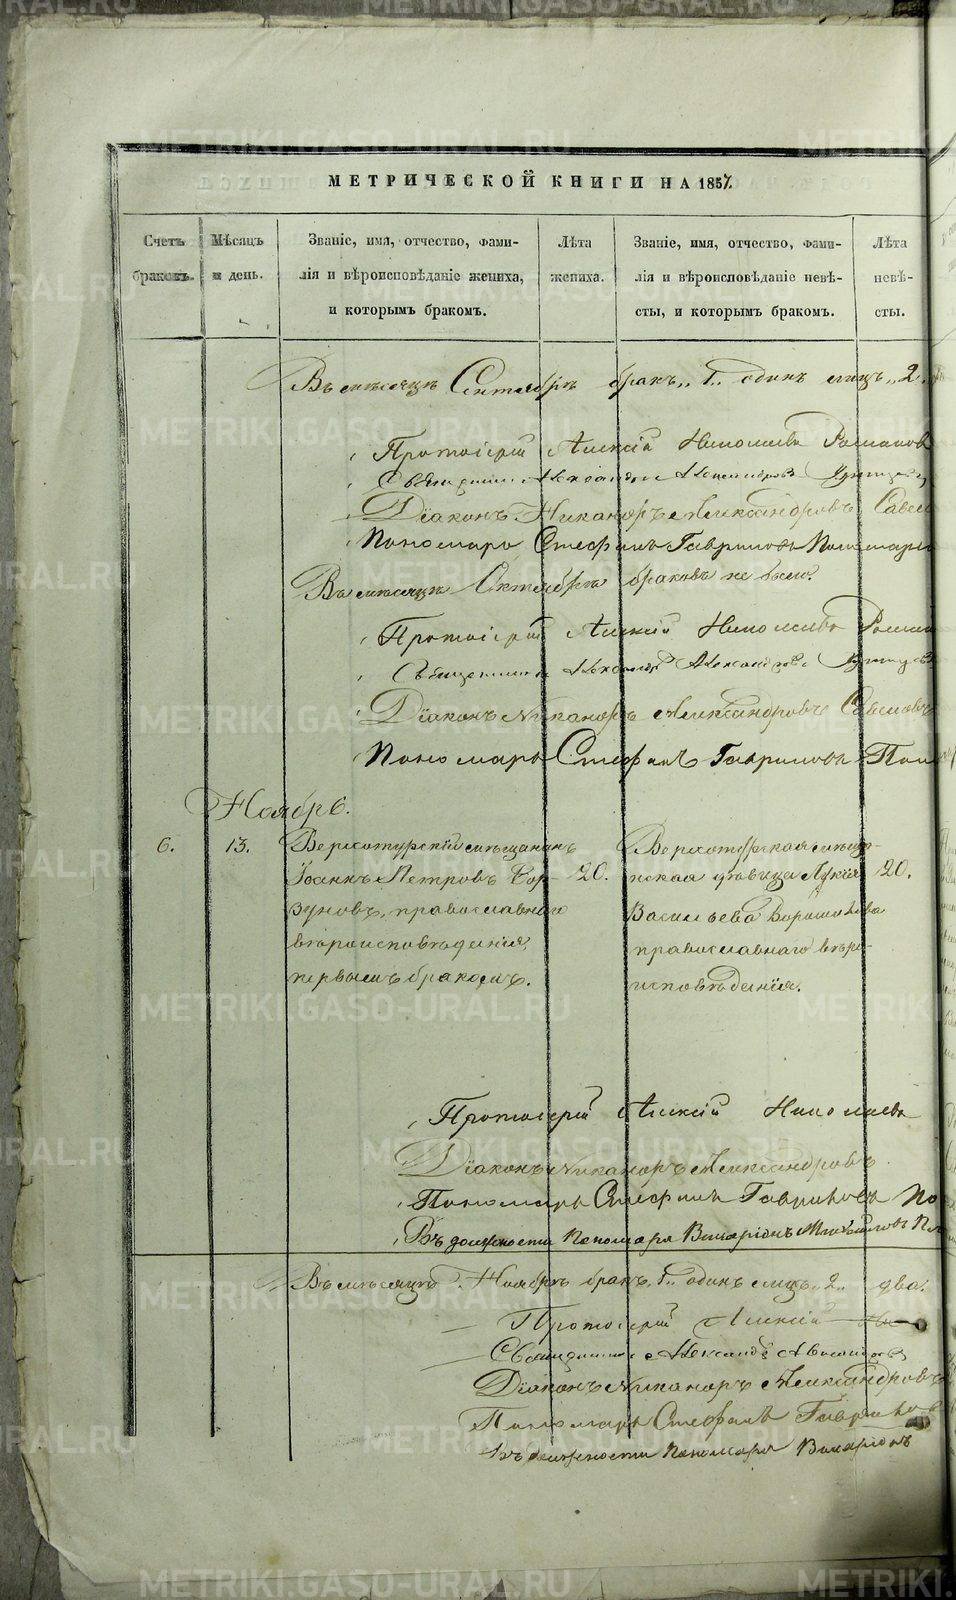 МЕТРИЧЕСКОЙ КНИГИ НА 1857.
Счетъ браковъ.
Мѣсяцъ и день.
Званіе, имя, отчество, фами-
лія и вѣроисповѣданіе жениха,
и которымъ бракомъ.
Лѣта жениха.
Званіе, имя, отчество, фами-
лія и вѣроисповѣданіе невѣ-
сты, и которымъ бракомъ.
Лѣта невѣ-
сты.
Въ мѣсяцѣ Сентябрѣ бракъ „1„ одинъ лицъ „2„
Протоіерей Алексій Николаевъ
Священникъ Александръ Александровъ
Діаконъ Никаноръ Александровъ
Пономарь Стефанъ Гавриловъ
Въ мѣсяцѣ Октябрѣ браковъ не было.
Протоіерей Алексій Николаевъ
Священникъ Александръ Александровъ
Діаконъ Никаноръ Александровъ
Пономарь Стефанъ Гавриловъ
Ноябрь.
6.
13.
Верхотурскій мѣщанинъ
Іоаннъ Петровъ Бор-
зуновъ, православнаго
вѣроисповѣданія,
первымъ бракомъ.
20.
Верхотурская мѣщан-
ская дѣвица Лукія
Васильева
православнаго вѣро-
исповѣданія.
20.
Протоіерей Алексій Николаевъ
Діаконъ Никаноръ Александровъ
Пономарь Стефанъ Гавриловъ
Въ должности Пономаря Виссаріонъ Михайловъ
Въ мѣсяцѣ Ноябрѣ бракъ „1„ одинъ лицъ „2„ два.
Протоіерей Алексій
Священникъ Александръ Александровъ
Діаконъ Никаноръ Александровъ
Пономарь Стефанъ Гавриловъ
Въ должности Пономаря Виссаріонъ
METRIKI.GASO-URAL.RU